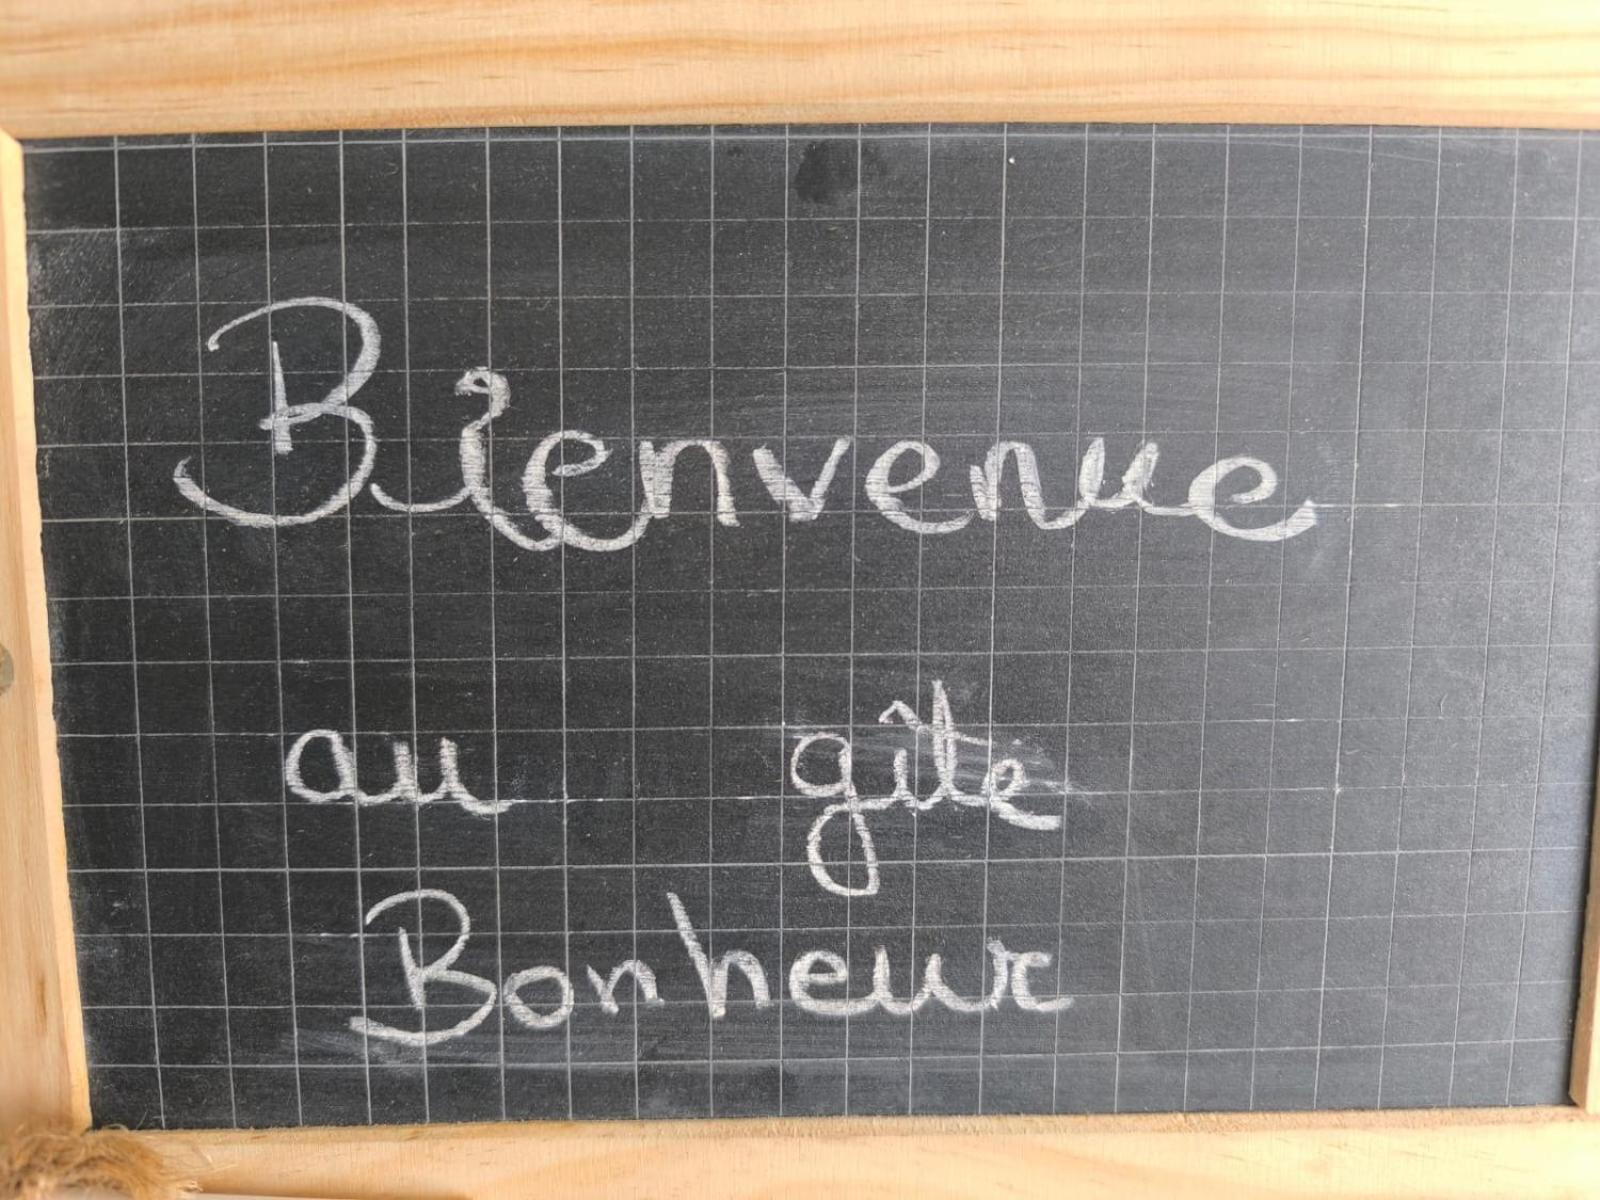 Bienvenue
au gîte
Bonheur